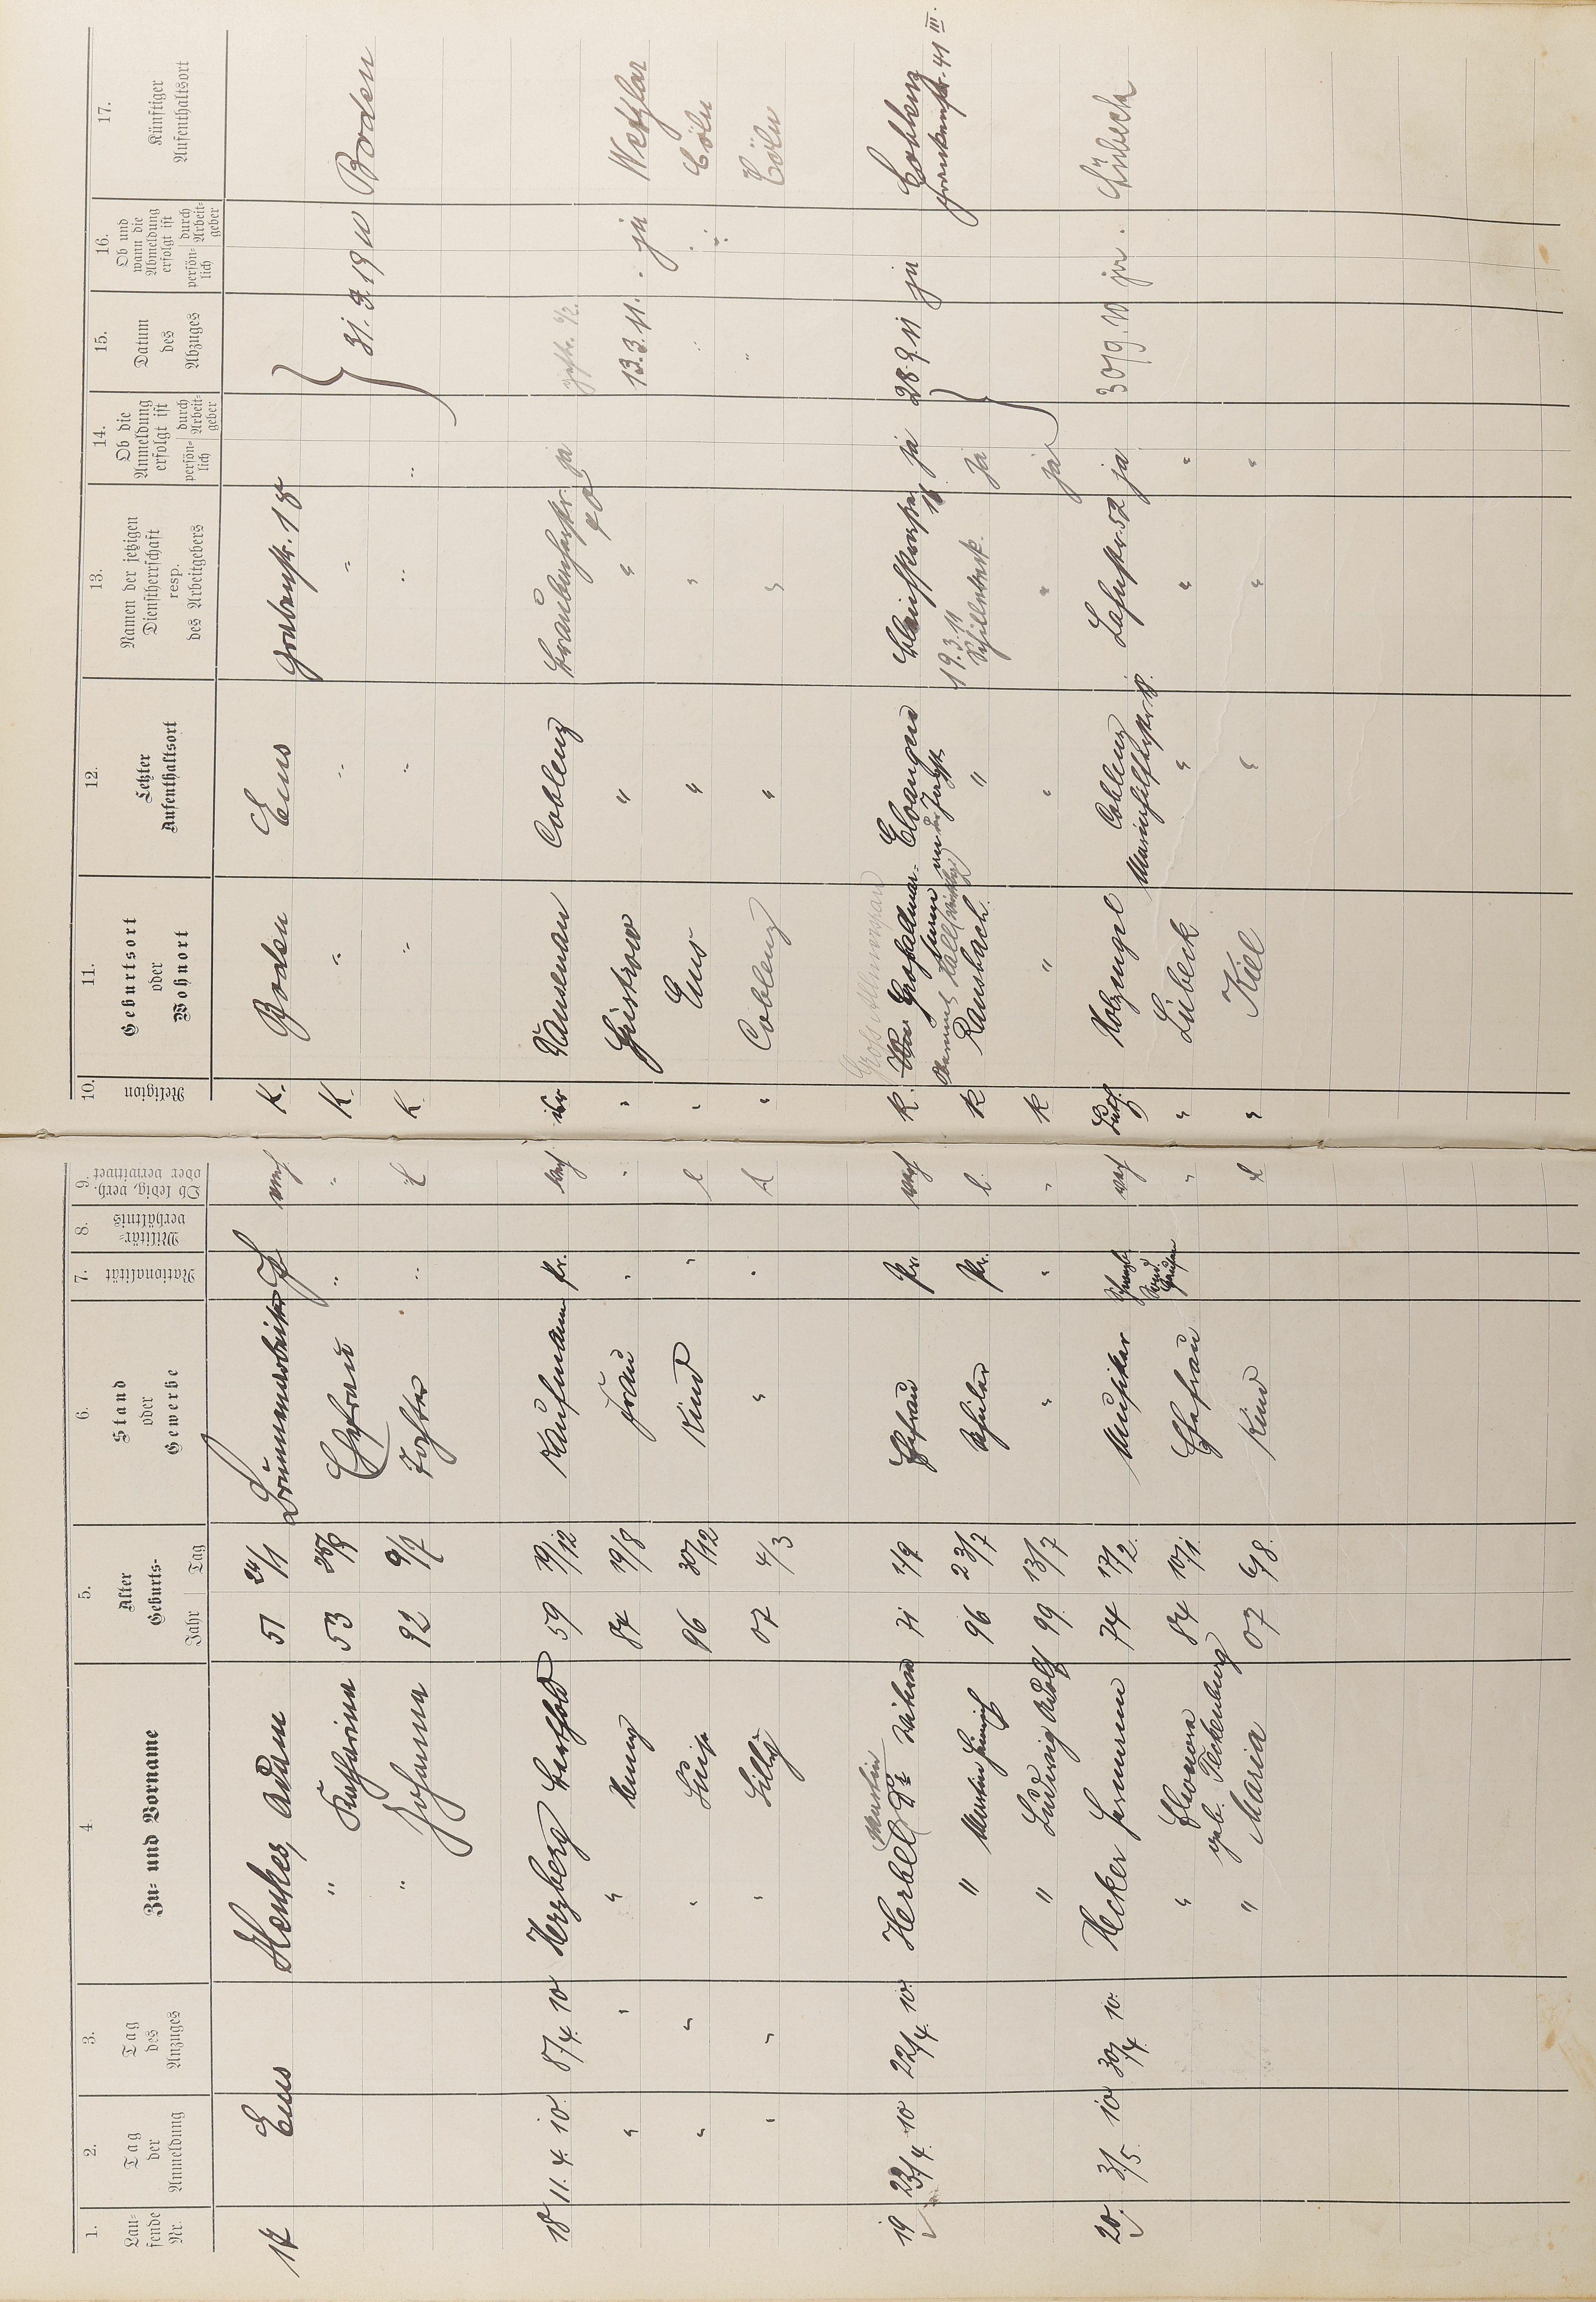 1. Lau= fende Nr.
2. Tag der Anmeldung
3. Tag des Anzuges
4 Zu= und Vorname
5. Alter Geburts= Jahr Tag
6. Stand oder Gewerbe
7. Nationalität
8. Militär= verhältnis
9. Ob ledig, verh. oder verwitwet
10. Religion
11. Geburtsort oder Wohnort
12. Letzter Aufenthaltsort
13. Namen der jetzigen Dienstherrschaft resp. des Arbeitgebers
14. Ob die Anmeldung erfolgt ist persön= lich durch Arbeit= geber
15. Datum des Abzuges
16. Ob und wann die Abmeldung erfolgt ist persön= lich durch Arbeit= geber
17. Künftiger Aufenthaltsort
17 Ems Henkes, Adam 51 24/1 Brunnenarbeiter verh K. Boden Ems Grabenstr. 18
" Katharina 53 Ehefrau " K. " " " 31. 3. 1910 Boden
" Johanna 92 9/7 Tochter " l K. " " " "
18 11. 4. 10. 8/4. 10 Herzberg Berthold 59 19/12 Kaufmann Pr. verh isr Nausenau Coblenz ja
" " " Henny 84 19/8 Frau " " " Güstrow " " 13. 3. 11. ja Wetzlar
" " " Luise 96 30/12 Kind " l " Ems " " " " Cöln
" " " Lilly 07 4/3 " " l " Coblenz " " " " Cöln
Gross Allmerspan
19 23/4. 10 22/4. 10. Herbel Martin 71 1/9 Ehefrau Pr. verh K. Elwangen ja 28. 9 11 ja Coblenz
" Martin Heinrich 96 23/7 Schüler Pr. l. K Ransbach " 19. 3. 11 Schulstr. ja
" Ludwig Adolf 99. 13/7 " " " K " " " ja
20. 3/5. 10 30/4. 10. Hecker Hermann 74 17/2. Musiker verh Holzengel Coblenz Mainzerstr. Lahnstr. 52 ja 30/9. 10 ja. Lübeck
" Eleonora geb. Teckenburg 84 10/1. Ehefrau " " Lübeck " " "
" Maria 07 6/8. Kind l " Kiel " " "